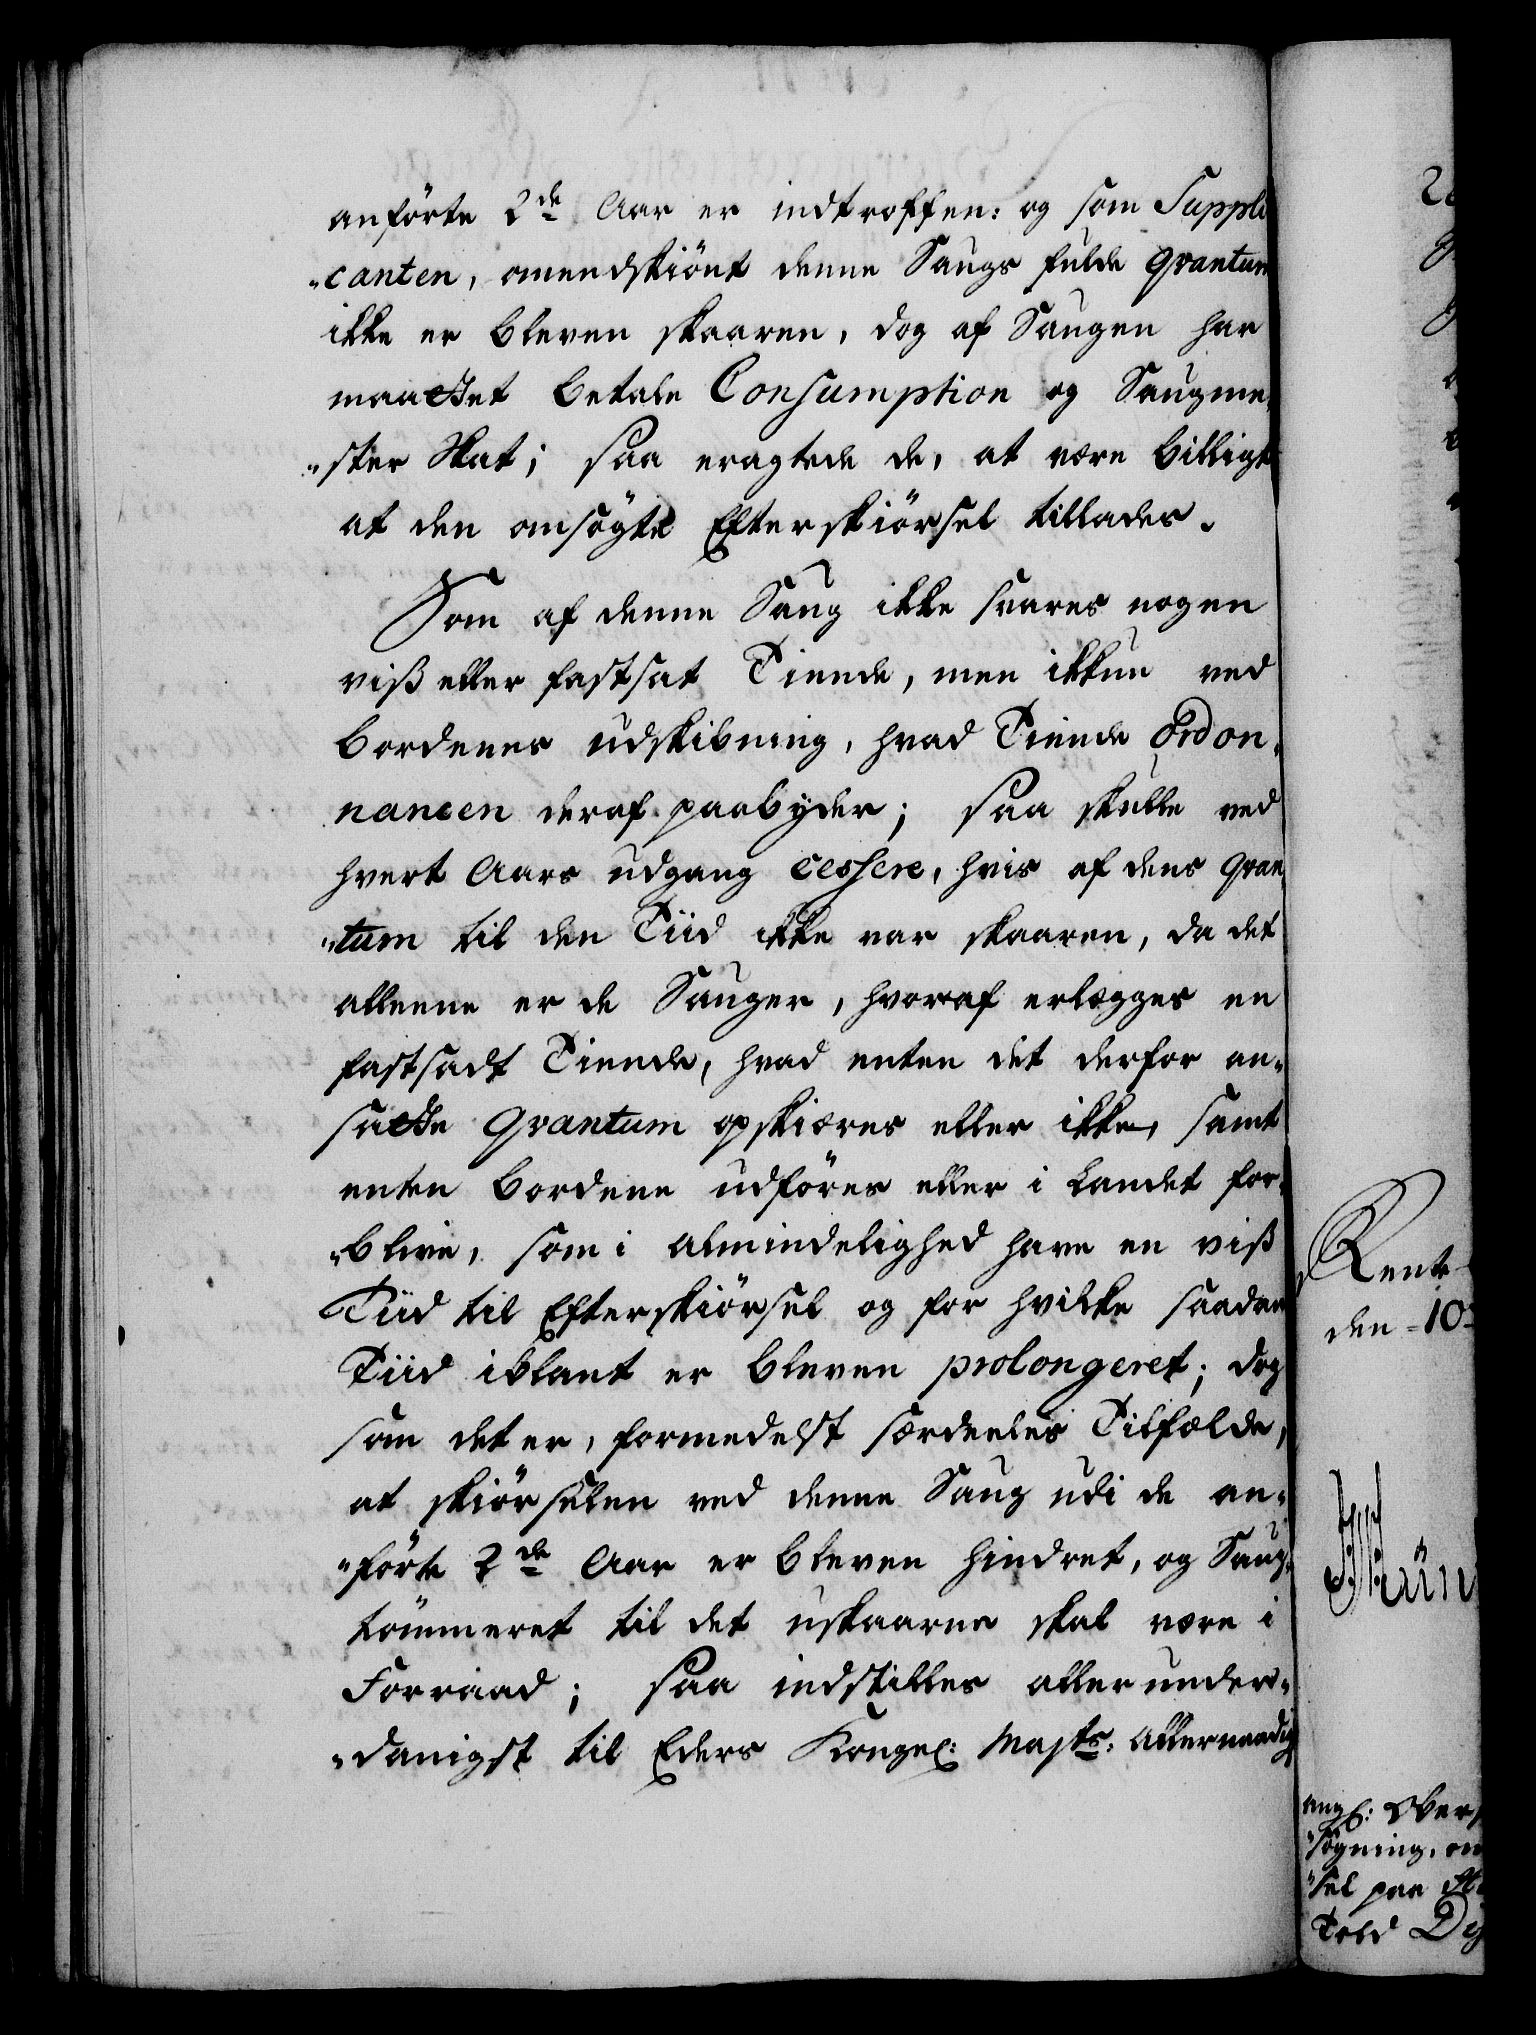 anförte 2de Aar er indtroffen: og som Suppli
"canten, omendskiönt denne Saugs fulde Qvantum
ikke er bleven skaaren, dog af Saugen har
maattet betale Consumption og Saugme,
"ster Skat; saa eragtede de, at være billigt
at den omsögte Efterskiörsel tillades.
Som af denne Saug ikke svares nogen
viß eller fastsat Tiende, men ikkun ved
Bordenes udskibning, hvad Tiende Ordon,
nancen deraf paabyder; saa skulle ved
hvert Aars udgang cessere, hvis af dens Qvan
"tum til den Tiid ikke var skaaren, da det
alleene er de Sauger, hvoraf erlegges en
fastsadt Tiende, hvad enten det derfor an,
satte Qvantum opskieres eller ikke, samt
enten Bordene udföres eller i Landet for,
"blive, som i almindelighed have en viß
Tiid til Efterskiörsel og for hvilke saadan
Tiid iblant er bleven prolongeret; dog
som det er, formedelst særdeeles Tilfælde,
at skiörselen ved denne Saug udi de an,
"förte 2de Aar er bleven hindret, og Saug,
tömmeret til det uskaarne skal være i
Forraad; saa indstilles allerunder,
"danigst til Eders Kongel: Majts: allernaadig
Rente
den 10
ang:
"sögning, om
"sel paa
Told